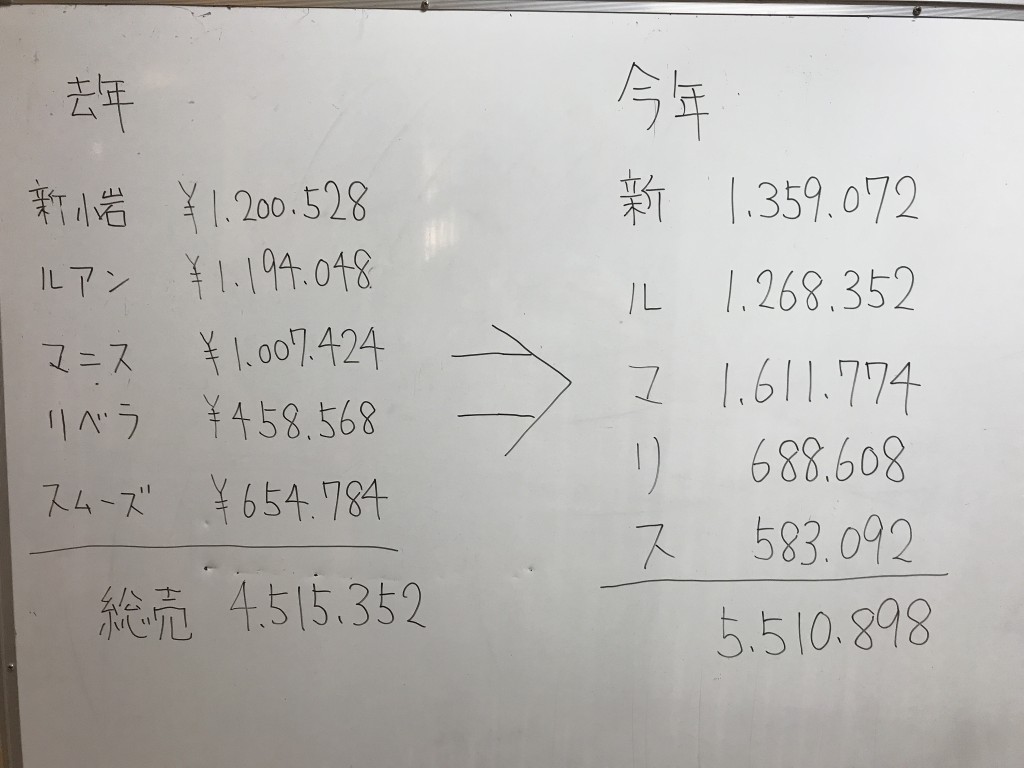 去年
新小岩 ¥1.200.528
ルアン ¥1.194.048
マニス ¥1.007.424
リベラ ¥458.568
スムーズ ¥654.784
総売 4.515.352
今年
新 1.359.072
ル 1.268.352
マ 1.611.774
リ 688.608
ス 583.092
5.510.898